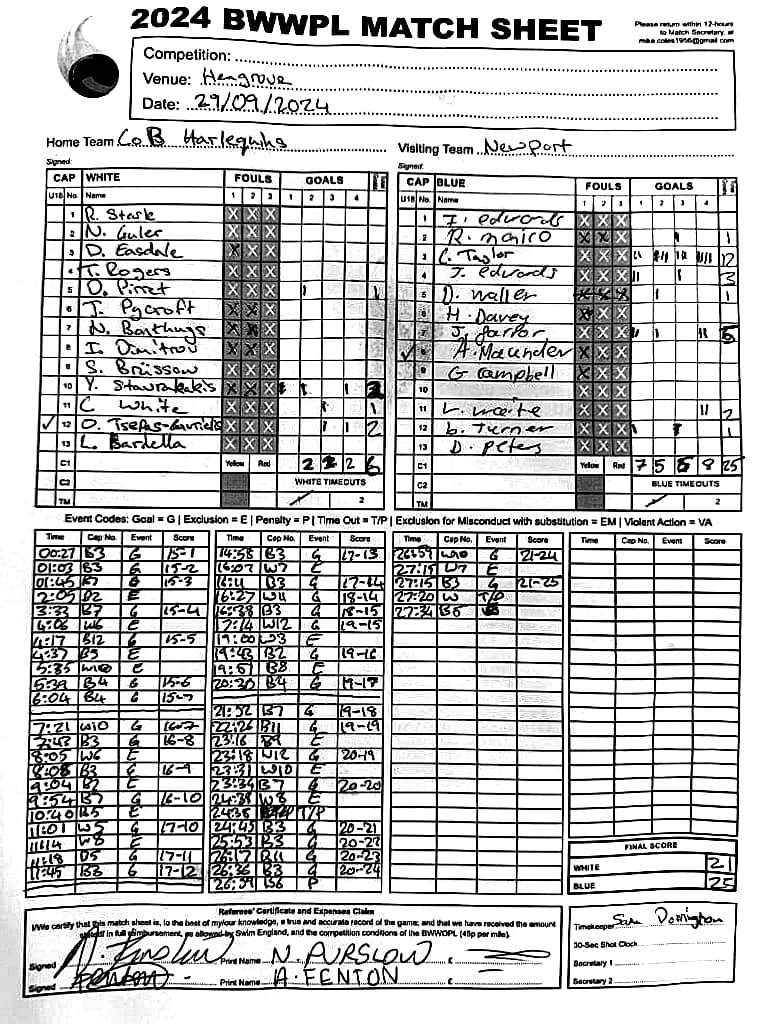 2024 BWWPL MATCH SHEET
Please return within 12-hours
to Match Secretary, at
mike.coles1956@gmail.com
Competition:
Venue: Hengrove
Date: 29/09/2024
Home Team CoB Harlequins
Visiting Team Newport
Signed:
Signed:
CAP WHITE FOULS GOALS
U18 No. Name 1 2 3 1 2 3 4
1 R. Stark X X X
2 N. Guler X X X
3 D. Easdale X X X
4 T. Rogers X X X
5 O. Pirret X X X
6 T. Pycroft X X X
7 N. Barthus X X X
8 I. Dimitrov X X X
9 S. Brisson X X X
10 Y. Stavrakakis X X X
11 C White X X X 1
12 O. Tsepas-Gavriels X X X 2
13 L. Bardella X X X
C1 Yellow Red 2 2 2 6
C2 WHITE TIMEOUTS
TM 2
CAP BLUE FOULS GOALS
U18 No. Name 1 2 3 1 2 3 4
1 F. edwards X X X
2 R. X X X 1
3 C. Taylor X X X 12
4 J. edwards X X X 3
5 D. waller X X X 1
6 H. Davey X X X
7 J. X X X 5
8 A. Maunder X X X
9 G Campbell X X X
10 X X X
11 L. waite X X X 2
12 b. Turner X X X 1
13 D. Peters X X X
C1 Yellow Red 7 5 5 8 25
C2 BLUE TIMEOUTS
TM 2
Event Codes: Goal = G | Exclusion = E | Penalty = P | Time Out = T/P | Exclusion for Misconduct with substitution = EM | Violent Action = VA
Time Cap No. Event Score
00:27 B3 G 15-1
01:03 B3 G 15-2
01:45 B7 G 15-3
2:05 D2 E
3:33 B7 G 15-4
4:06 W6 E
4:17 B12 G 15-5
4:37 B9 E
5:35 W10 E
5:39 B4 G 15-6
6:04 B4 G 15-7
7:21 W10 G 16-7
7:43 B3 G 16-8
8:05 W6 E
8:08 B3 G 16-9
9:04 B2 E
9:54 B7 G 16-10
10:40 B5 E
11:01 W5 G 17-10
11:14 W8 E
11:18 D5 G 17-11
11:45 B3 G 17-12
Time Cap No. Event Score
14:58 B3 G 17-13
16:07 W7 E
16:11 B3 G 17-14
16:27 W11 G 18-14
16:38 B3 G 18-15
17:14 W12 G 19-15
19:00 W3 E
19:43 B2 G 19-16
19:51 B8 E
20:30 B4 G 19-17
21:52 B7 G 19-18
22:26 B11 G 19-19
23:16 B9 E
23:18 W12 G 20-19
23:31 W10 E
23:34 B7 G 20-20
24:38 W8 E
24:38 T/P
24:45 B3 G 20-21
25:53 B3 G 20-22
26:17 B11 G 20-23
26:36 B3 G 20-24
26:59 B6 P
Time Cap No. Event Score
26:59 W10 G 21-24
27:15 W7 E
27:15 B3 G 21-25
27:20 W T/P
27:34 B5 E
Time Cap No. Event Score
FINAL SCORE
WHITE 21
BLUE 25
Referees' Certificate and Expenses Claim
I/We certify that this match sheet is, to the best of my/our knowledge, a true and accurate record of the game; and that we have received the amount
stated in full reimbursement, as allowed by Swim England, and the competition conditions of the BWWPL (45p per mile).
Signed Print Name N. PURSLOW £
Signed Print Name A. FENTON £
Timekeeper Sam
30-Sec Shot Clock
Secretary 1
Secretary 2